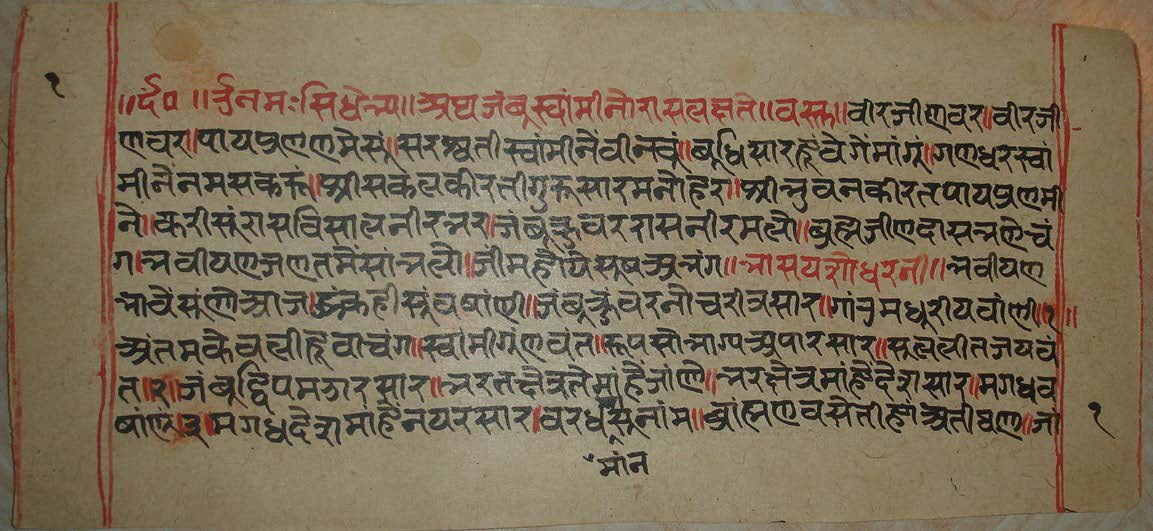 १
॥र्द०॥ ॐ नमः सिधेभ्य॥ अथ जंबुस्वांमीनो रास लष्यते॥ वस्तु॥ वीर जीणवर॥ वीर जी
णवर॥ पाय प्रणणमेसुं॥ सरश्वती स्वांमीनें वीनवुं॥ बुधि सार हुं वेगें मांगुं॥ गणधर स्वां
मीनें नमसकरु॥ श्री सकलकीरती गुरु सार मनोहर॥ श्री भुवनकीरत पाय प्रणमी
नें॥ करीसुं रास विसाल नीरभर॥ जंबुकुवर रास नीरमलो॥ ब्रह्म जीणदास भणे चं
ग॥ भवीयण जण तमें सांभलो॥ जीम होय सुष अभंग॥ भास यशोधरनी॥ भवीयण
भावें सुंणो आज॥ हुं कहीसुं वषांणी॥ जंबुकुंवरनो चरीत्र सार॥ गांउ मधुरीय वांणी॥१॥
अंतम केवली हुवा चंग॥ स्वांमी गुंणवंत॥ रूप सोभाग्य अपार सार॥ सूललीत जयवं
त॥२॥ जंबुद्विप मझार सार॥ भरतक्षेत्र तेमांहें जांणो॥ भरक्षेत्रमांहें देश सार॥ मगध व
षांणुं॥३॥ मगध देशमाहें नयर सार॥ वरधसूनांम॥ ब्रांह्मण वसे तीहां अती घण॥ जा
१
मांन